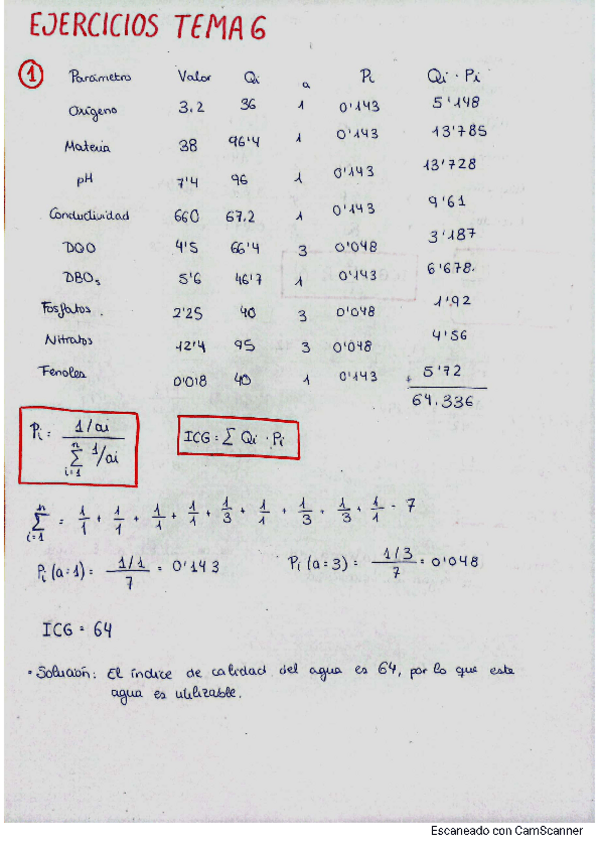 EJERCICIOS TEMA 6
1 Parámetro Valor Qi a Pi Qi · Pi
Oxígeno 3.2 36 1 0'143 5'148
Materia 38 96'4 1 0'143 13'785
pH 7'4 96 1 0'143 13'728
Conductividad 660 67.2 1 0'143 9'61
DQO 4'5 66'4 3 0'048 3'187
DBO5 5'6 46'7 1 0'143 6'678.
Fosfatos. 2'25 40 3 0'048 1'92
Nitratos 12'4 95 3 0'048 4'56
Fenoles 0'018 40 1 0'143 + 5'72
64.336
Pi = 1/ai / n Σ i=1 1/ai
ICG = Σ Qi · Pi
n Σ i=1 = 1/1 + 1/1 + 1/1 + 1/1 + 1/3 + 1/1 + 1/3 + 1/3 + 1/1 = 7
Pi (a=1) = 1/1 / 7 = 0'143 Pi (a=3) = 1/3 / 7 = 0'048
ICG = 64
• Solución: El índice de calidad del agua es 64, por lo que este
agua es utilizable.
Escaneado con CamScanner